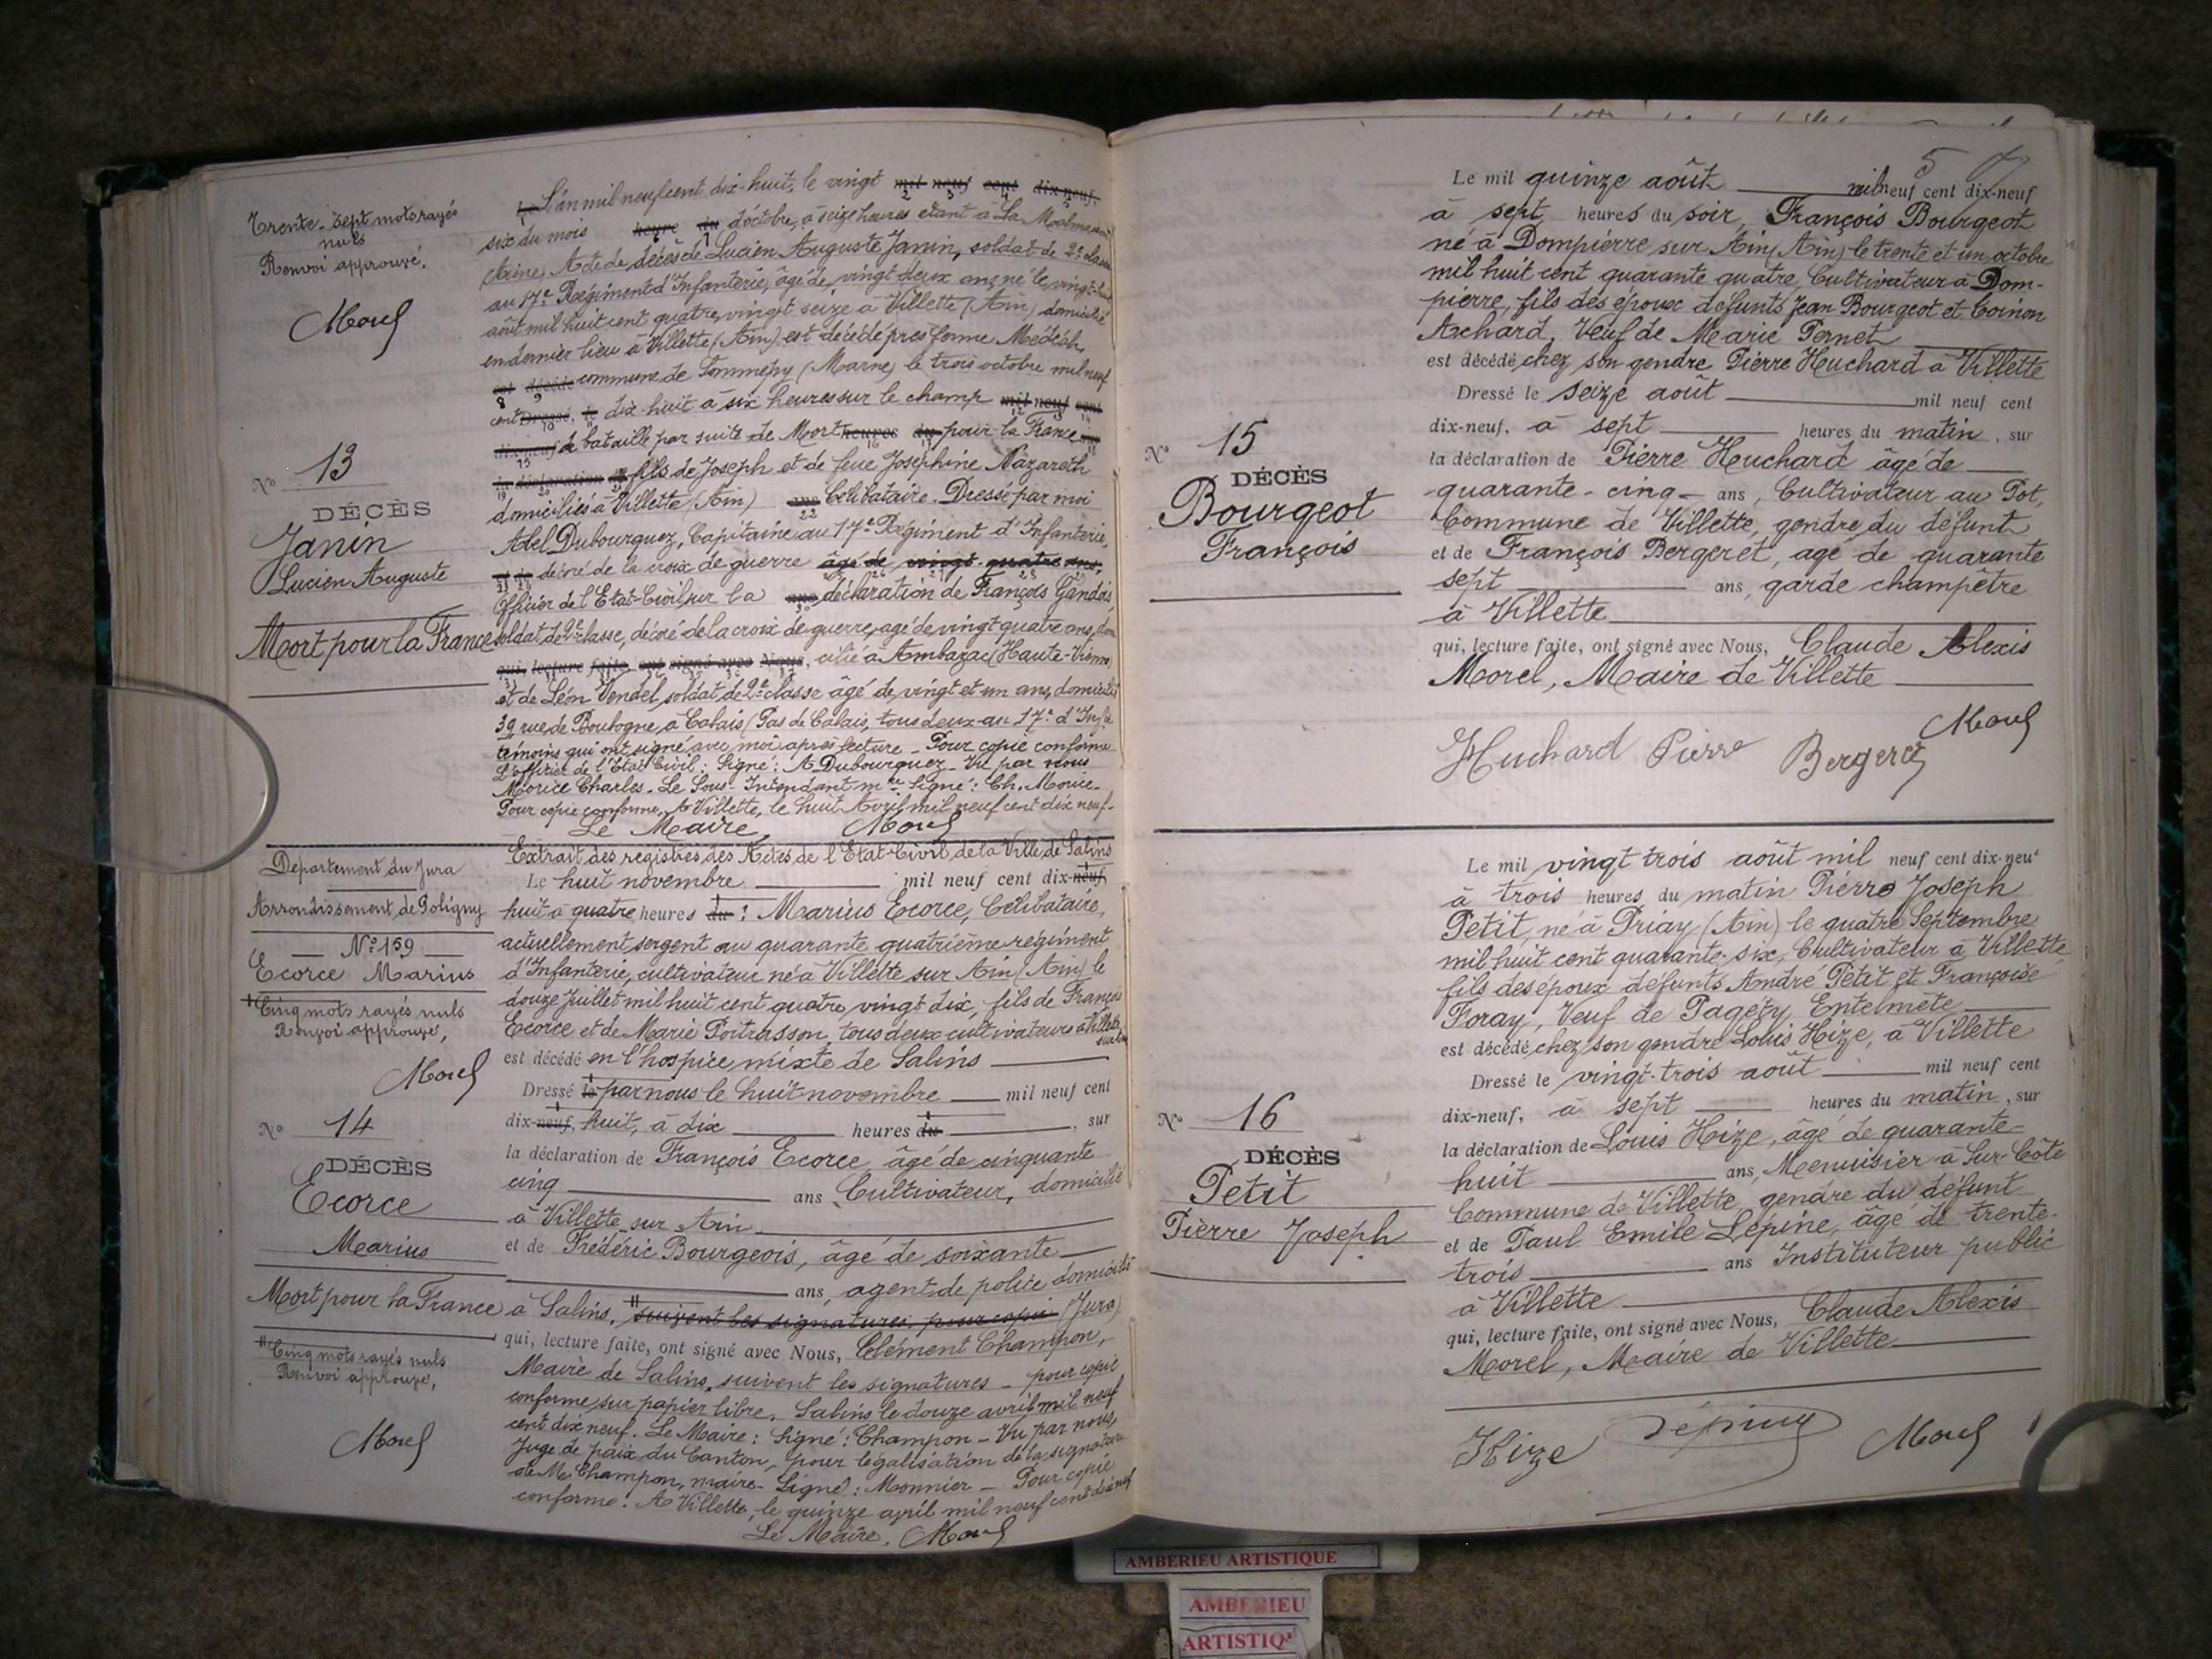 Trente-sept mots rayés
nuls
Renvoi approuvé.
Morel
No 13
DÉCÈS
Janin
Lucien Auguste
Mort pour la France
Le L'an mil neuf cent dix-huit, le vingt mil neuf cent dix-neuf
six du mois heure du d'octobre, à seize heures étant à La Malmaison
Acte de décès de Lucien Auguste Janin, soldat de 2e classe
au 17e Régiment d'Infanterie, âgé de vingt deux ans, né le vingt-huit
août mil huit cent quatre vingt seize à Villette (Ain) domicilié
en dernier lieu à Villette (Ain) est décédé près ferme Médéah,
est décédé commune de Sommepy (Marne) le trois octobre mil neuf
cent Dressé, le dix-huit à six heures sur le champ mil neuf cent
dix-neuf de bataille par suite de Mort heures du pour la France sur
la déclaration de fils de Joseph et de feue Joséphine Nazareth
domiciliés à Villette (Ain) ans Célibataire. Dressé par moi
Abel Dubourguez, Capitaine au 17e Régiment d'Infanterie,
et de décoré de la croix de guerre âgé de vingt-quatre ans,
Officier de l'Etat-Civil, sur la ans déclaration de François Gandois,
soldat de 2e classe, décoré de la croix de guerre, agé de vingt quatre ans, dom
qui, lecture faite, ont signé avec Nous, cilié à Ambazac (Haute-Vienne)
et de Léon Vendel, soldat de 2e classe âgé de vingt et un ans, domicilié
39 rue de Boulogne, à Calais (Pas de Calais, tous deux au 17e d'Infie
témoins qui ont signé avec moi après lecture - Pour copie conforme
L'officier de l'Etat Civil : Signé : A Dubourguez - Vu par nous
Morice Charles. Le Sous-Intendant mre Signé : Ch. Morice.
Pour copie conforme, A Villette, le huit Avril mil neuf cent dix neuf.
Le Maire, Morel
Département du Jura
Arrondissement de Poligny
No 159
Ecorce Marius
Cinq mots rayés nuls
Renvoi approuvé,
Morel
No 14
DÉCÈS
Ecorce
Marius
Mort pour la France
Cinq mots rayés nuls
Renvoi approuvé,
Morel
Extrait des registres des Actes de l'Etat-Civil de la Ville de Salins
Le huit novembre mil neuf cent dix-neuf
huit à quatre heures du : Marius Ecorce, Célibataire,
actuellement sergent au quarante quatrième régiment
d'Infanterie, cultivateur né à Villette sur Ain (Ain) le
douze Juillet mil huit cent quatre vingt dix, fils de François
Ecorce et de Marie Portrasson, tous deux cultivateurs à Villette
sur Ain
est décédé en l'hospice mixte de Salins
Dressé le par nous le huit novembre mil neuf cent
dix-neuf, huit, à dix heures du , sur
la déclaration de François Ecorce, âgé de cinquante
cinq ans Cultivateur, domicilié
à Villette sur Ain
et de Frédéric Bourgeois, âgé de soixante
ans, agent de police domicilié
à Salins, suivent les signatures, pour copie (Jura)
qui, lecture faite, ont signé avec Nous, Clément Champon,
Maire de Salins, suivent les signatures - pour copie
conforme sur papier libre, Salins le douze avril mil neuf
cent dix neuf. Le Maire : Signé : Champon - Vu par nous,
Juge de paix du Canton, pour légalisation de la signature
de Mr Champon, maire - Signé : Monnier - Pour copie
conforme : A Villette, le quinze avril mil neuf cent dix neuf
Le Maire, Morel
5
No 15
DÉCÈS
Bourgeot
François
Le mil quinze août mil neuf cent dix-neuf
à sept heures du soir, François Bourgeot
né à Dompierre sur Ain (Ain) le trente et un octobre
mil huit cent quarante quatre, Cultivateur à Dom-
pierre, fils des époux défunts Jean Bourgeot et Coinon
Achard, Veuf de Marie Pernet
est décédé chez son gendre Pierre Huchard à Villette
Dressé le seize août mil neuf cent
dix-neuf, à sept heures du matin, sur
la déclaration de Pierre Huchard âgé de
quarante-cinq ans, Cultivateur au Pot,
Commune de Villette, gendre du défunt
et de François Bergeret, âgé de quarante
sept ans, garde champêtre
à Villette
qui, lecture faite, ont signé avec Nous, Claude Alexis
Morel, Maire de Villette
Huchard Pierre Bergeret Morel
No 16
DÉCÈS
Petit
Pierre Joseph
Le mil vingt trois août mil neuf cent dix-neuf
à trois heures du matin Pierre Joseph
Petit, né à Priay (Ain) le quatre Septembre
mil huit cent quarante-six, Cultivateur à Villette
fils des époux défunts André Petit et Françoise
Foray, Veuf de Pagéty Entelmète
est décédé chez son gendre Louis Hize, à Villette
Dressé le vingt-trois août mil neuf cent
dix-neuf, à sept heures du matin, sur
la déclaration de Louis Hize, âgé de quarante-
huit ans, Menuisier à Sur-Côte
Commune de Villette, gendre du défunt
et de Paul Emile Lépine, âgé de trente-
trois ans Instituteur public
à Villette
qui, lecture faite, ont signé avec Nous, Claude Alexis
Morel, Maire de Villette
Hize Lépine Morel
AMBERIEU ARTISTIQUE
AMBERIEU
ARTISTIQ